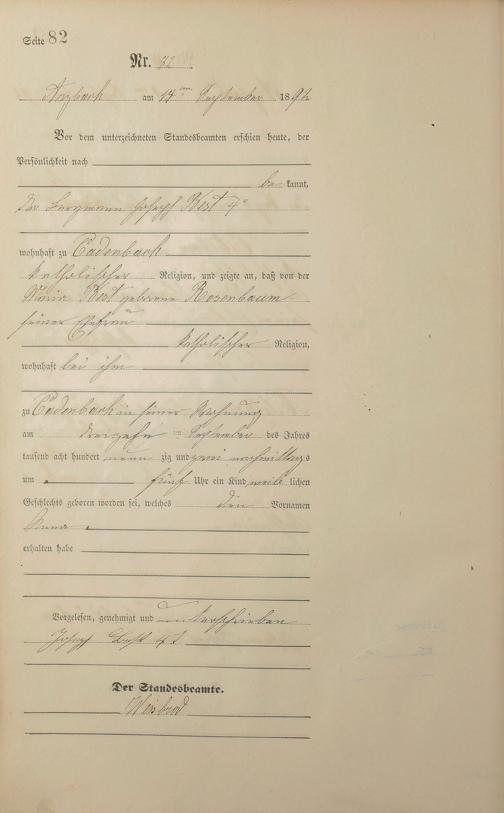 Seite 82
Nr. 72.
Arzbach am 14ten September 1892
Vor dem unterzeichneten Standesbeamten erschien heute, der
Persönlichkeit nach
be kannt,
der Bergmann Joseph Best 4r
wohnhaft zu Cadenbach
katholischer Religion, und zeigte an, daß von der
Maria Best geborene Rosenbaum
seiner Ehefrau
katholischer Religion,
wohnhaft bei ihm
zu Cadenbach in seiner Wohnung
am dreizehn ten September des Jahres
tausend acht hundert neun zig und zwei nachmittags
um fünf Uhr ein Kind weib lichen
Geschlechts geboren worden sei, welches den Vornamen
Anna
erhalten habe
Vorgelesen, genehmigt und unterschrieben
Joseph Best
Der Standesbeamte.